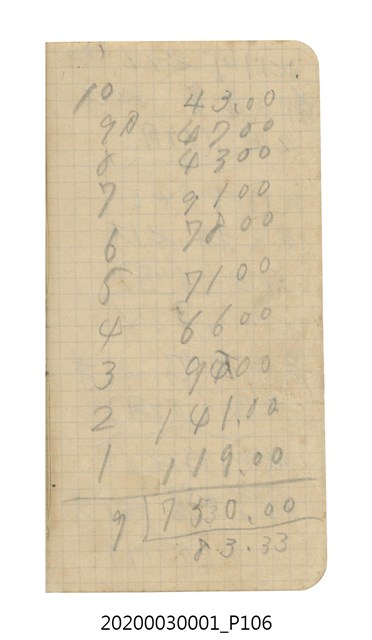 10 43.00
9月 4700
8 4300
7 9100
6 7800
5 7100
4 6600
3 9400
2 141.00
1 119.00
9 750.00
83.33
20200030001_P106